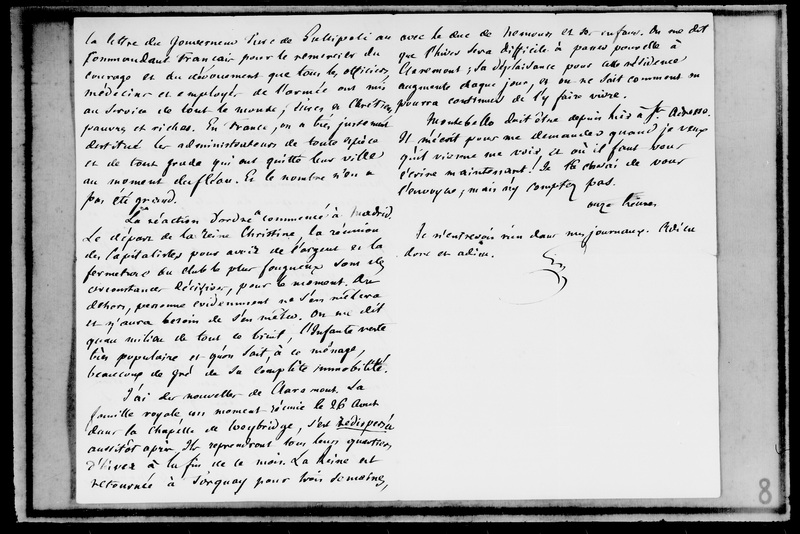 la lettre du Gouverneur Turc de Gallipoli au
Commandant Français pour le remercier du
courage et du dévouement que tous les officiers,
médecins et employés de l'armée ont mis
au service de tout le monde, Turcs et Chrétiens,
pauvres et riches. En France, on a très justement
destitué les administrateurs de toute espèce
et de tout grade qui ont quitté leur ville
au moment du fléau. Et le nombre n'en a
pas été grand.
La réaction d'ordre a commencé à Madrid.
Le départ de la Reine Christine, la réunion
des Capitalistes pour avoir de l'argent et la
fermeture du club le plus fougueux sont des
circonstances décisives, pour le moment. Au
dehors, personne évidemment ne s'en mêlera
et n'aura besoin de s'en mêler. On me dit
qu'au milieu de tout ce bruit, l'Infante reste
très populaire et qu'on sait, à ce ménage,
beaucoup de gré de sa complète immobilité.
J'ai des nouvelles de Claremont. La
famille royale un moment réunie le 26 Août
dans la chapelle de Weybridge, s'est redispersée
aussitôt après. Ils reprendront tous leurs quartiers
d'hiver à la fin de ce mois. La Reine est
retournée à Torquay pour trois semaines,
avec le duc de Nemours et ses enfans. On me dit
que l'hiver sera difficile à passer pour elle à
Claremont; sa déplaisance pour cette résidence
augmente chaque jour, et on ne sait comment on
pourra continuer de l'y faire vivre.
Montebello doit être depuis hier à St Adresse.
Il m'écrit pour me demander quand je veux
qu'il vienne me voir, et où il faut vous
écrire maintenant. Je essai de vous
l'envoyer; mais n'y comptez pas.
onze heures.
Je n'entrevois rien dans mes journaux. Adieu
donc et adieu.
8